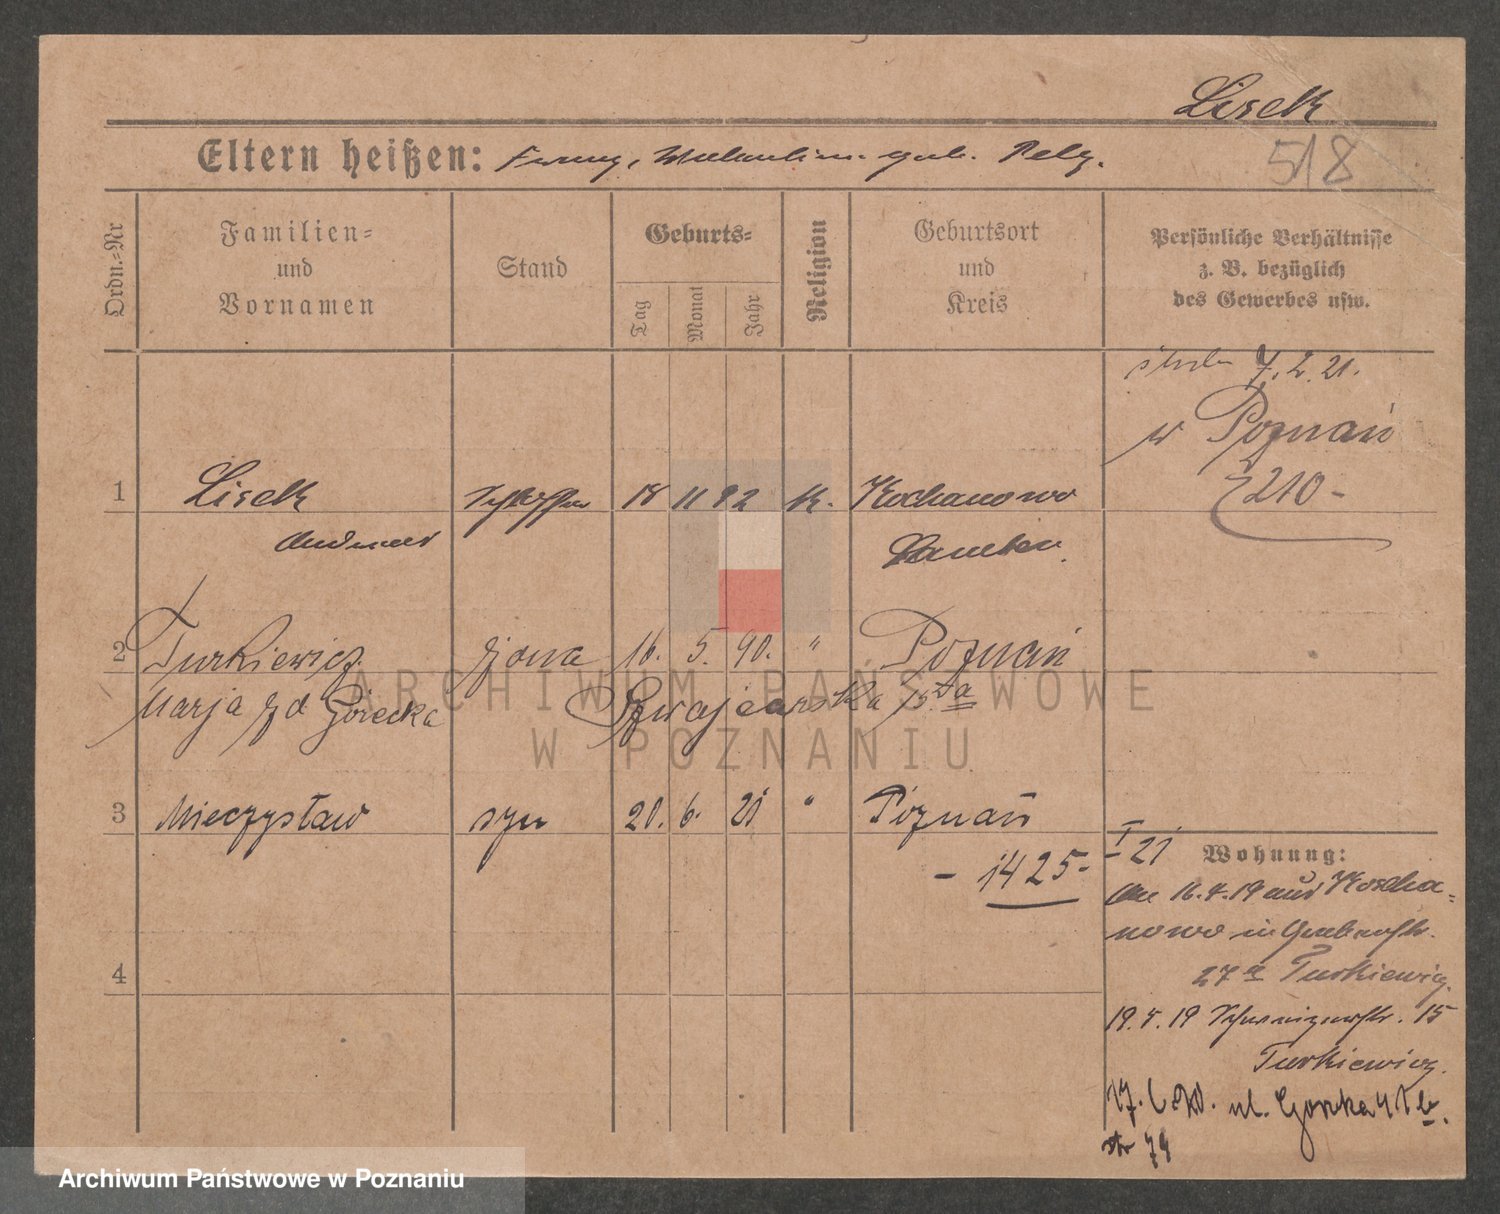 Lisek
Eltern heißen: Franz, geb. Pelz.
518
Ordn.-Nr
Familien-
und
Vornamen
Stand
Geburts-
Tag
Monat
Jahr
Religion
Geburtsort
und
Kreis
Persönliche Verhältnisse
z. B. bezüglich
des Gewerbes usw.
ślub 7.2.21.
w Poznań
210-
1 Lisek Schlosser 18 11 92 k. Kochanowo
Andreas Samter.
2 Turkiewicz żona 16. 5. 90. " Poznań
Marja zd Górecka Szwajcarska 15a
3 Mieczysław syn 20. 6. 21 " Poznań
- 1425- I 21
4
Wohnung:
16.4.19 aus Kocha=
nowo in Grabenstr.
27 a Turkiewicz.
19.4.19 Schweizerstr. 15
Turkiewicz.
17. ul.
str 74
ARCHIWUM PAŃSTWOWE
W POZNANIU
Archiwum Państwowe w Poznaniu